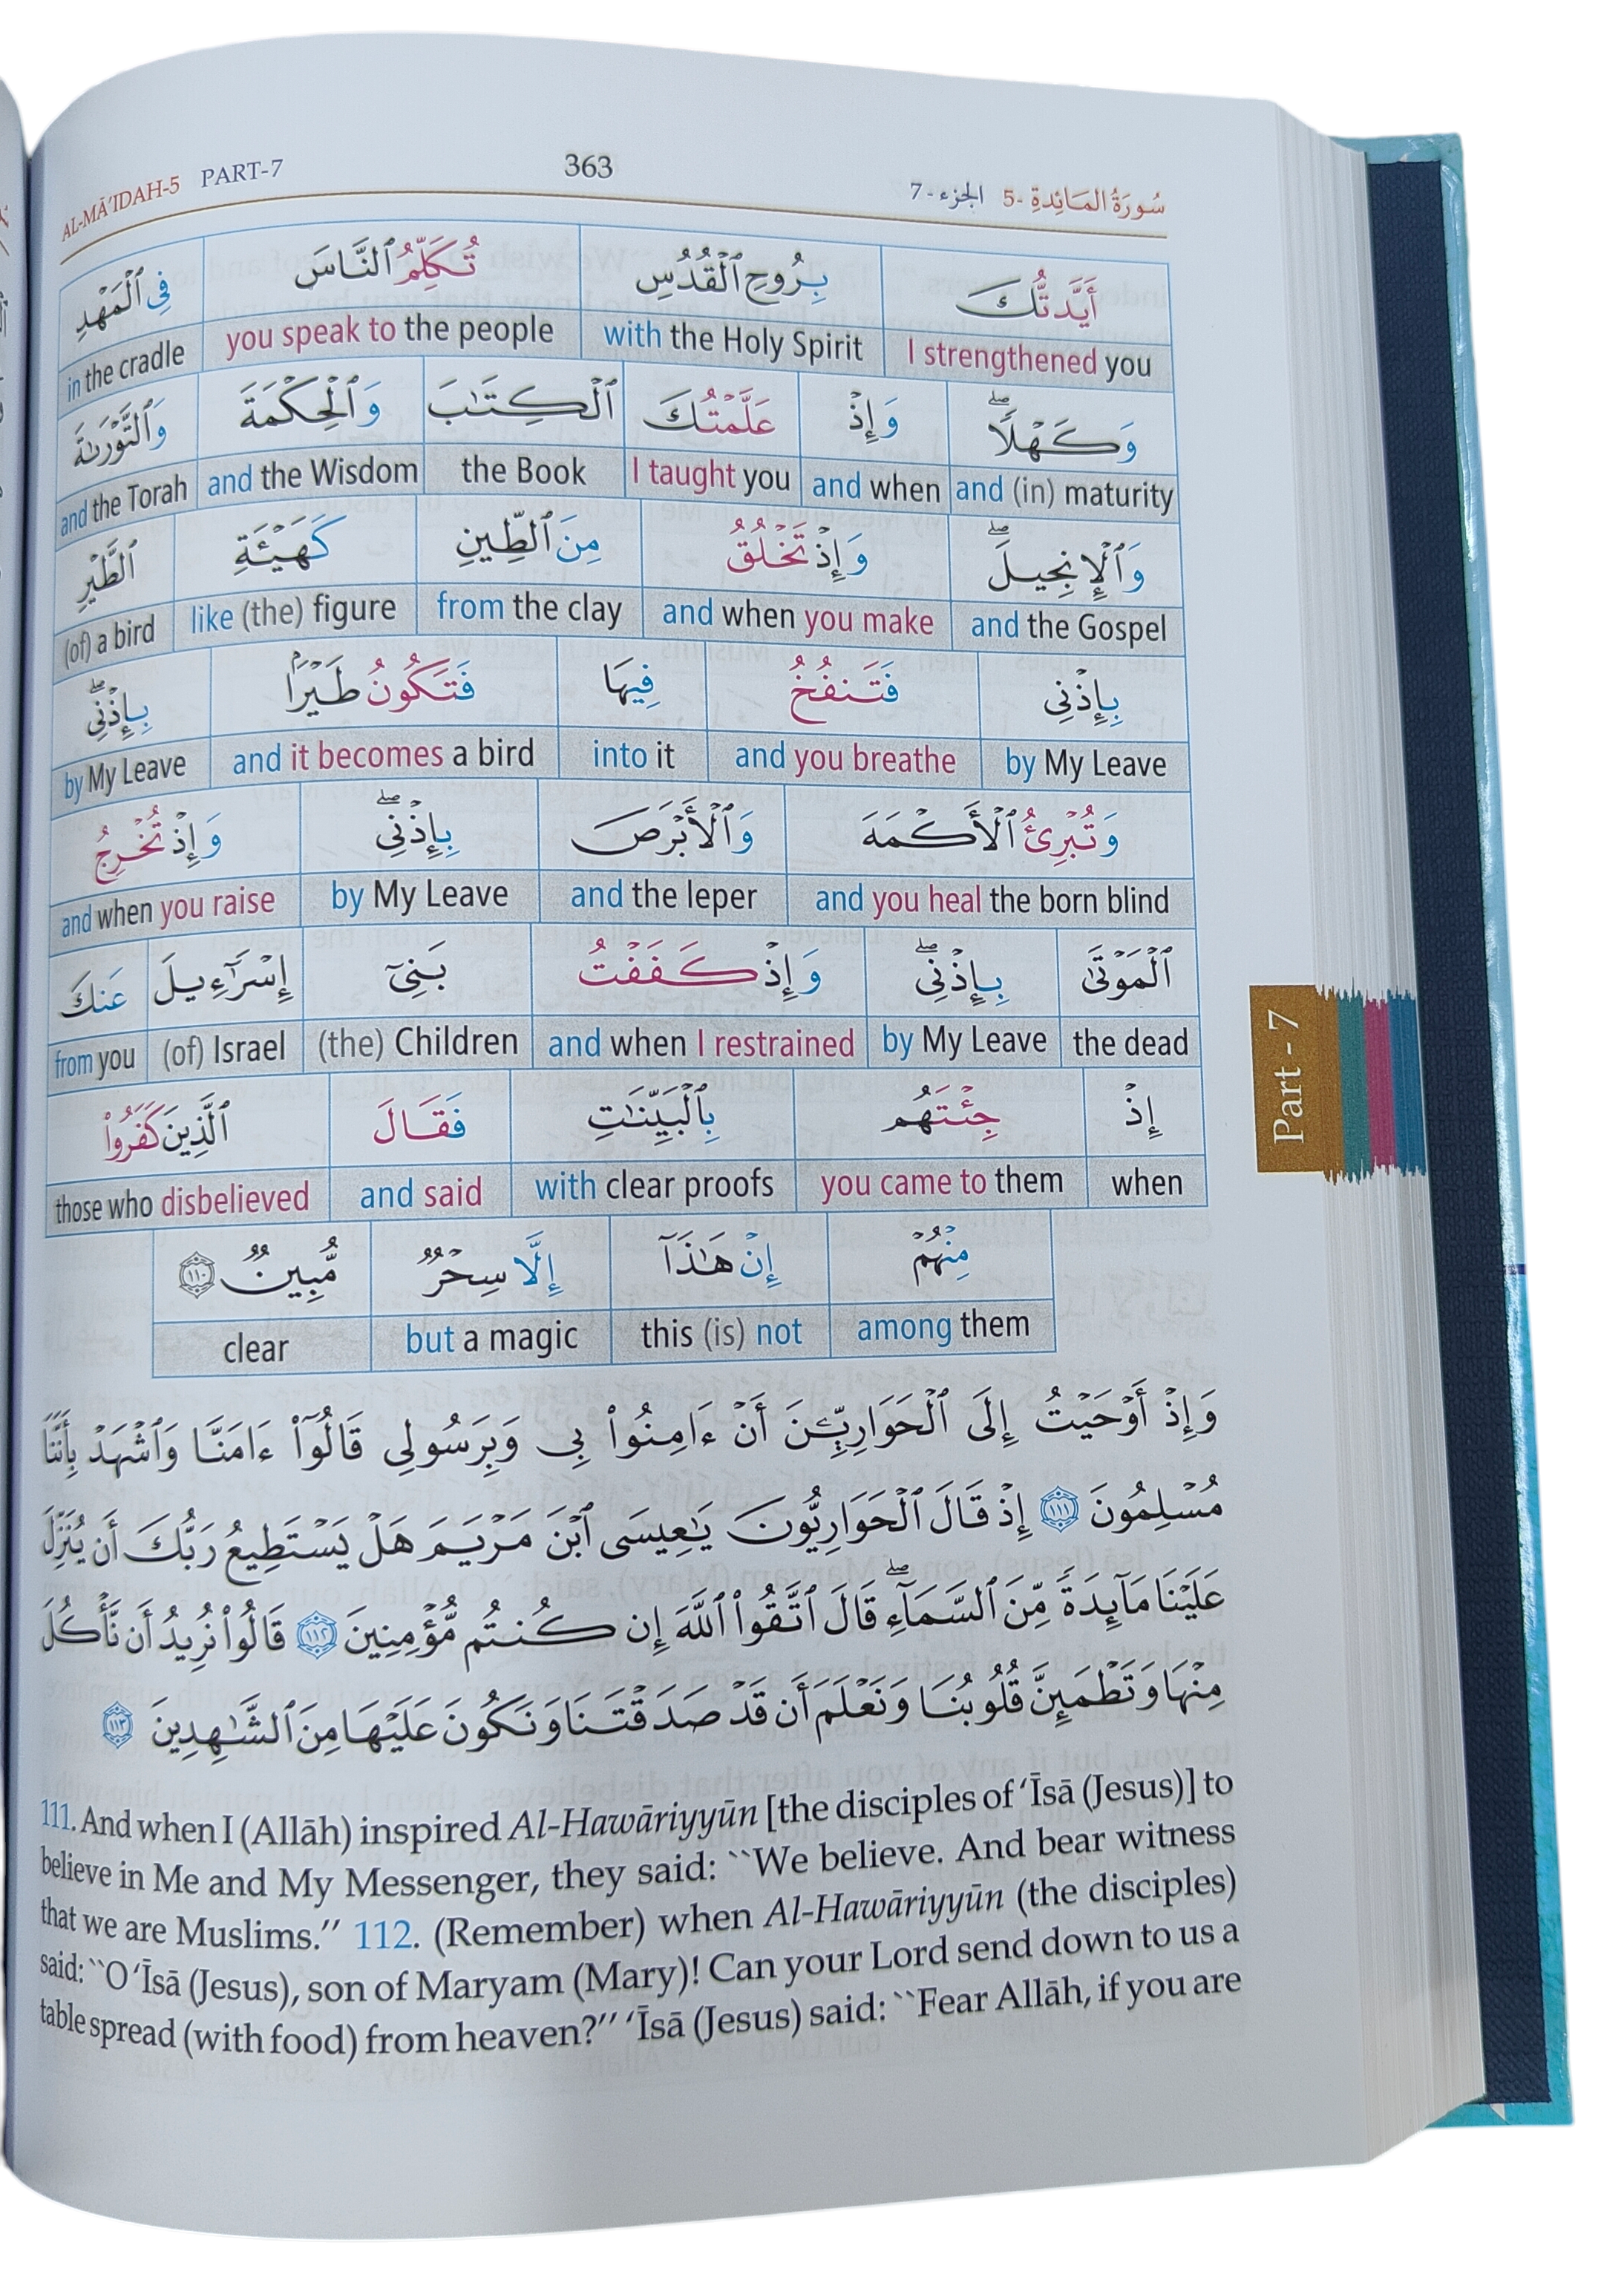 AL-MĀ'IDAH-5 PART-7 363 الجزء - 7 سُورَةُ المَائِدةِ -5
أَيَّدتُّكَ بِرُوحِ ٱلْقُدُسِ تُكَلِّمُ ٱلنَّاسَ فِى ٱلْمَهْدِ
I strengthened you with the Holy Spirit you speak to the people in the cradle
وَكَهْلًاۖ وَإِذْ عَلَّمْتُكَ ٱلْكِتَٰبَ وَٱلْحِكْمَةَ وَٱلتَّوْرَىٰةَ
and (in) maturity and when I taught you the Book and the Wisdom and the Torah
وَٱلْإِنجِيلَۖ وَإِذْ تَخْلُقُ مِنَ ٱلطِّينِ كَهَيْـَٔةِ ٱلطَّيْرِ
and the Gospel and when you make from the clay like (the) figure (of) a bird
بِإِذْنِى فَتَنفُخُ فِيهَا فَتَكُونُ طَيْرًۢا بِإِذْنِىۖ
by My Leave and you breathe into it and it becomes a bird by My Leave
وَتُبْرِئُ ٱلْأَكْمَهَ وَٱلْأَبْرَصَ بِإِذْنِىۖ وَإِذْ تُخْرِجُ
and you heal the born blind and the leper by My Leave and when you raise
ٱلْمَوْتَىٰ بِإِذْنِىۖ وَإِذْ كَفَفْتُ بَنِىٓ إِسْرَٰٓءِيلَ عَنكَ
the dead by My Leave and when I restrained (the) Children (of) Israel from you
إِذْ جِئْتَهُم بِٱلْبَيِّنَٰتِ فَقَالَ ٱلَّذِينَ كَفَرُوا۟
when you came to them with clear proofs and said those who disbelieved
مِنْهُمْ إِنْ هَٰذَآ إِلَّا سِحْرٌ مُّبِينٌ ١١٠
among them this (is) not but a magic clear
وَإِذْ أَوْحَيْتُ إِلَى ٱلْحَوَارِيِّـۧنَ أَنْ ءَامِنُوا۟ بِى وَبِرَسُولِى قَالُوٓا۟ ءَامَنَّا وَٱشْهَدْ بِأَنَّنَا
مُسْلِمُونَ ١١١ إِذْ قَالَ ٱلْحَوَارِيُّونَ يَٰعِيسَى ٱبْنَ مَرْيَمَ هَلْ يَسْتَطِيعُ رَبُّكَ أَن يُنَزِّلَ
عَلَيْنَا مَآئِدَةً مِّنَ ٱلسَّمَآءِۖ قَالَ ٱتَّقُوا۟ ٱللَّهَ إِن كُنتُم مُّؤْمِنِينَ ١١٢ قَالُوا۟ نُرِيدُ أَن نَّأْكُلَ
مِنْهَا وَتَطْمَئِنَّ قُلُوبُنَا وَنَعْلَمَ أَن قَدْ صَدَقْتَنَا وَنَكُونَ عَلَيْهَا مِنَ ٱلشَّٰهِدِينَ ١١٣
111. And when I (Allāh) inspired Al-Hawāriyyūn [the disciples of ‘Īsā (Jesus)] to
believe in Me and My Messenger, they said: ``We believe. And bear witness
that we are Muslims.'' 112. (Remember) when Al-Hawāriyyūn (the disciples)
said: ``O ‘Īsā (Jesus), son of Maryam (Mary)! Can your Lord send down to us a
table spread (with food) from heaven?'' ‘Īsā (Jesus) said: ``Fear Allāh, if you are
Part - 7